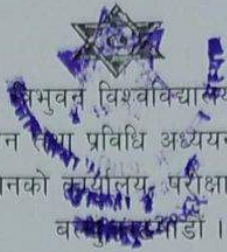 त्रिभुवन विश्वविद्यालय
न तथा प्रविधि अध्ययन
नको कार्यालय, परीक्षा